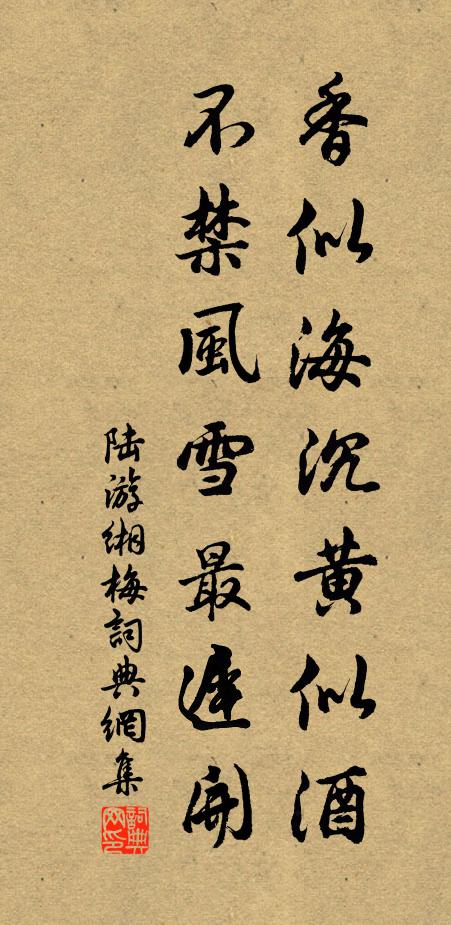 香似海沉黄似酒
不禁風雪最遲開
陆游缃梅詞典網集
詞典网印